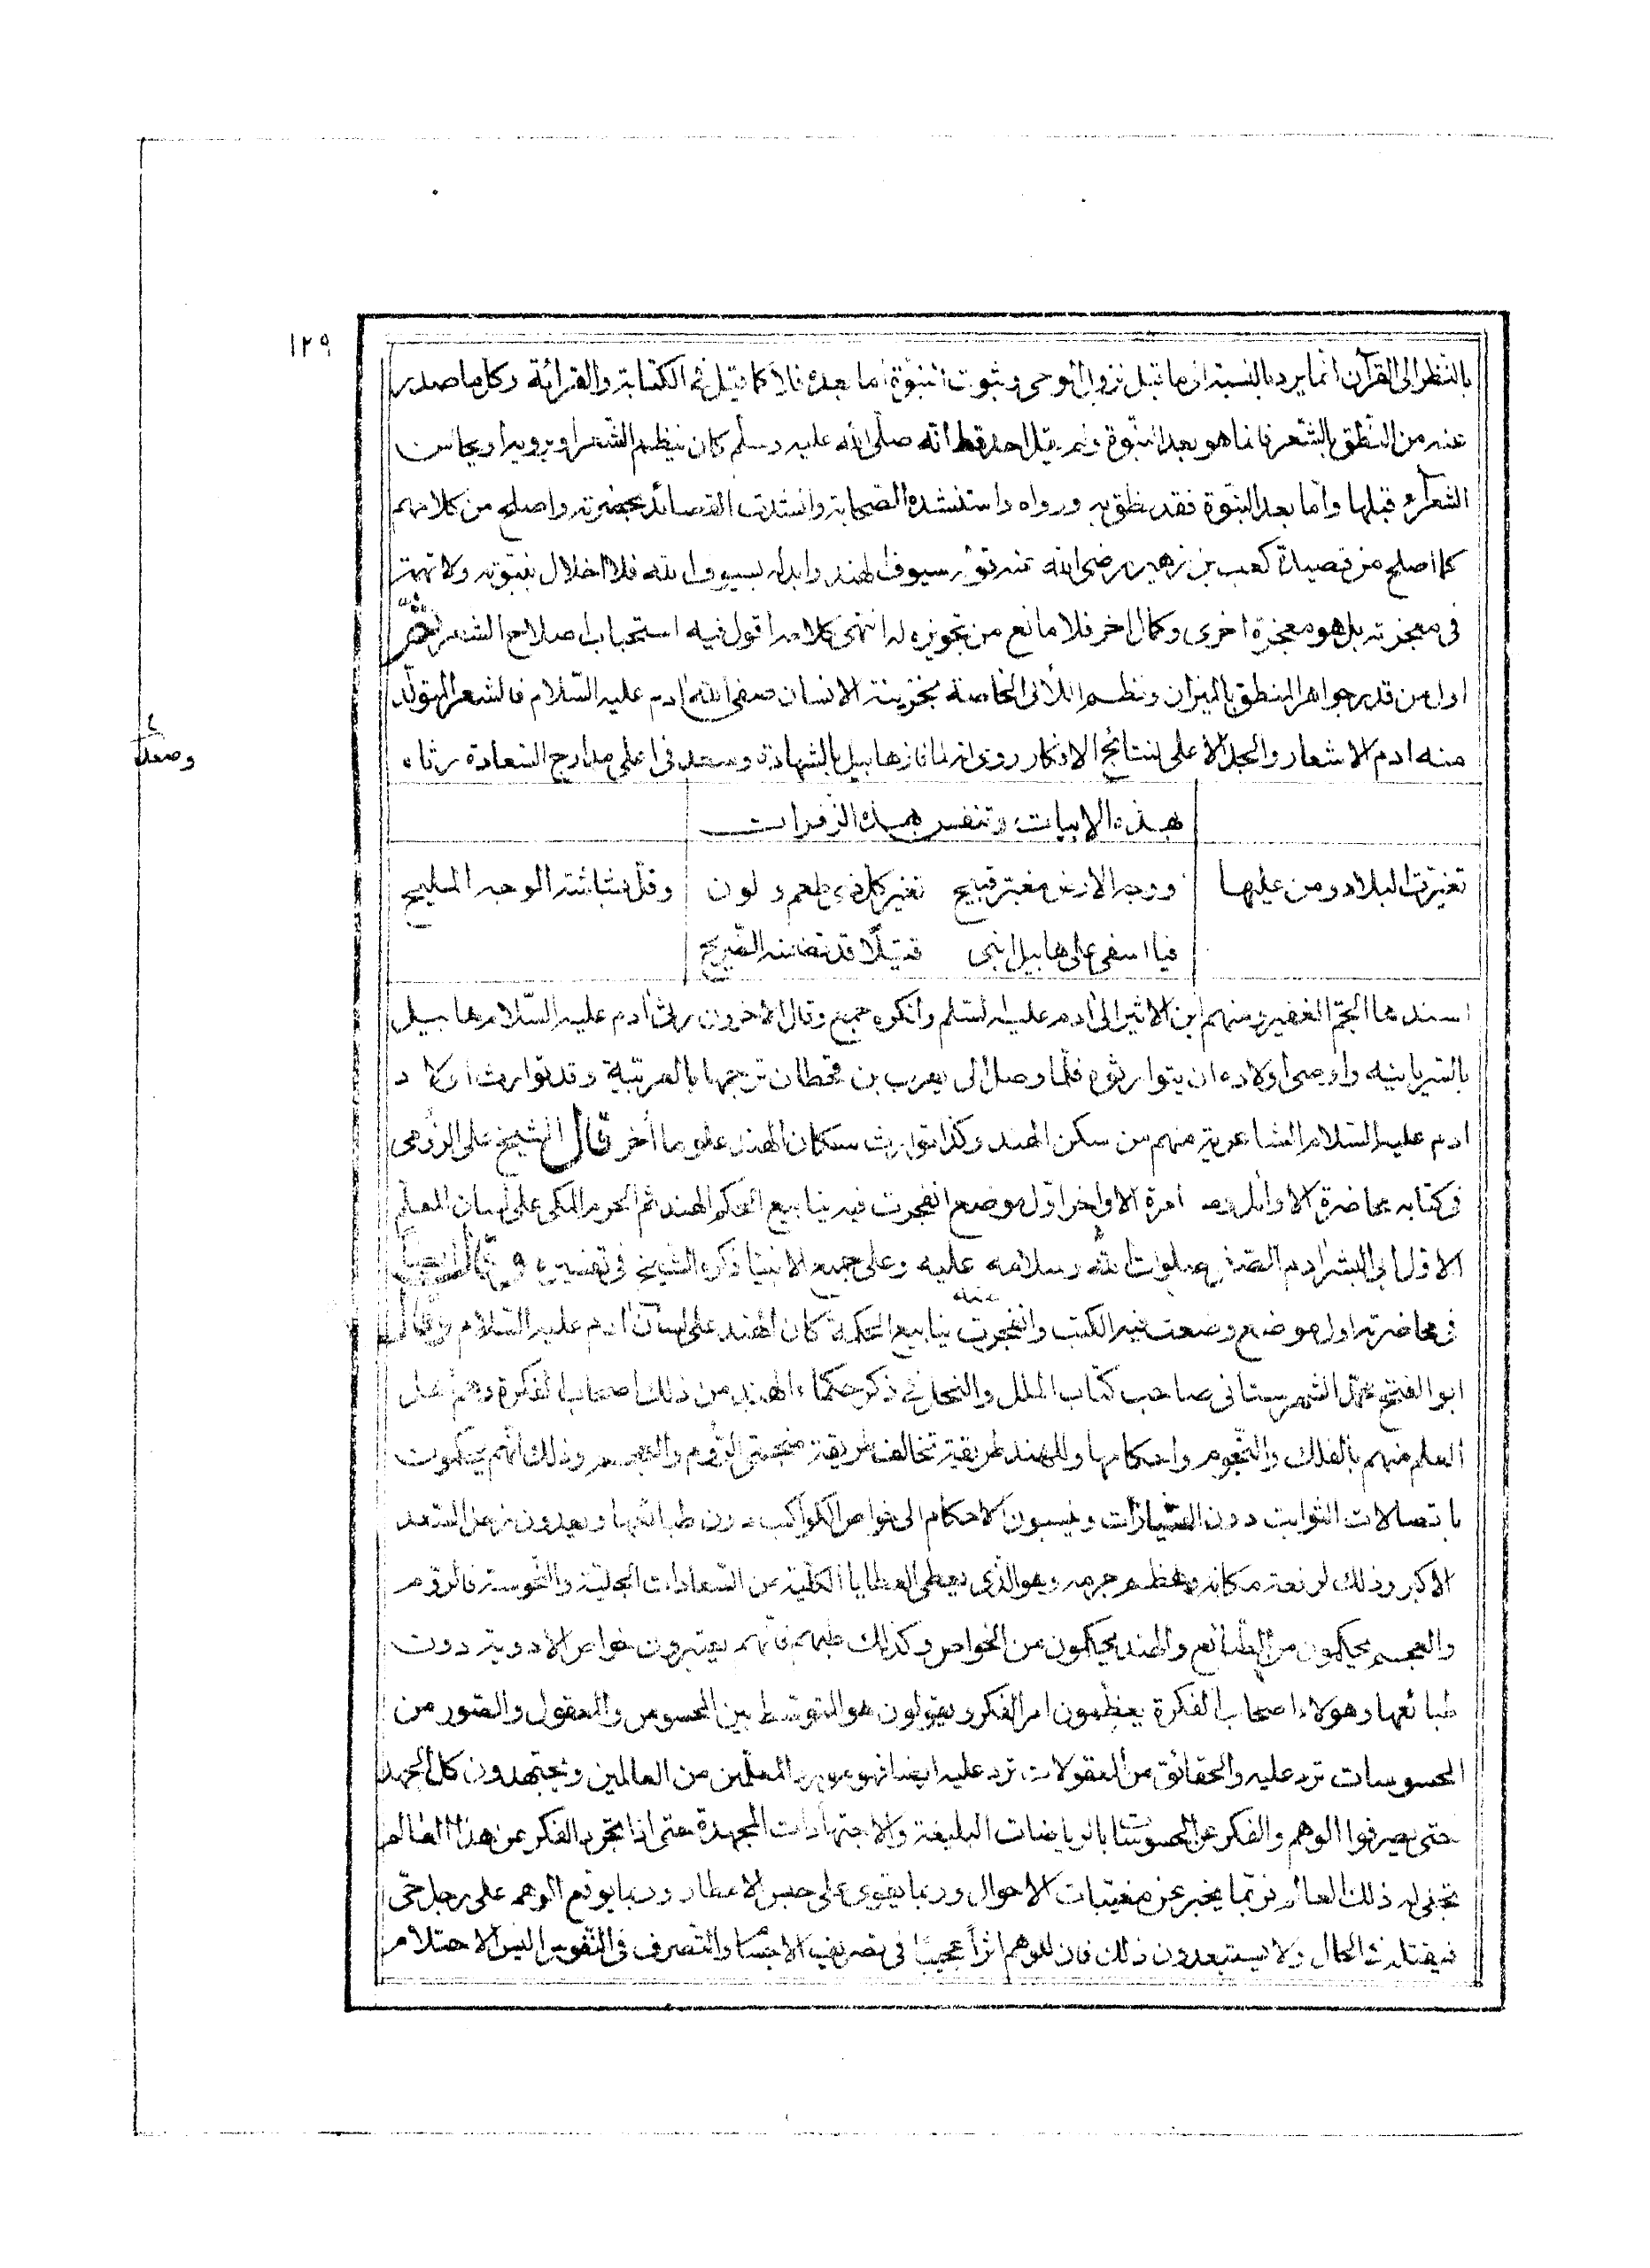 ١٢٩
بالنظر الى القرآن انما يرد بالنسبة الى ما قبل نزول الوحى وثبوت النبوة اما بعده فلا كما قيل فى الكتابة والقرائة وكل ما صدر
عنه من النطق بالشعر فانما هو بعد النبوة ولم يقل احد قط انه صلى الله عليه وسلم كان ينظم الشعر او يرويه او يجالس
الشعرآء قبلها واما بعد النبوة فقد نطق به ورواه واستنشده الصحابة وانشدت القصائد بحضرته واصلح من كلامهم
كما اصلح من قصيدة كعب بن زهير رضى الله عنه قوله سيوف الهند وابدله بسيوف الله فلا اخلال بنبوته ولا تهمة
فى معجزته بل هو معجزة اخرى وكمال اخر فلا مانع من تجويزه له انتهى كلامه اقول فيه استحباب اصلاح الشعر
اول من قدر جواهر المنطق بالميزان ونظم اللألى الخاصة بخزينة الانسان صفى الله ادم عليه السّلام فالشعر المتولّد
منه ادم الاشعار والجد الاعلى لنتائج الافكار روى انه لما فاز هابيل بالشهادة وصعد فى اعلى مدارج السعادة رثاه
وصعد
بهذه الابيات وتنفس بهذه الزفرات
تغيرت البلاد ومن عليها ووجه الارض مغبر قبيح تغير كل ذى طعم ولون وقل بشاشة الوجه المليح
فيا اسفى على هابيل ابنى قتيلًا قد تضمنه الضّريح
اسندها الجم الغفير ومنهم ابن الاثير الى أدم عليه السلم وانكره جميع وقال الاخرون رثى أدم عليه السّلام هابيل
بالسريانية واوصى اولاده ان يتوارثوه فلما وصل الى يعرب بن قحطان ترجمها بالعربّية وقد توارث اولاد
ادم عليه السّلام الشاعرية منهم من سكن الهند وكذا توارث سكان الهند علوما أخر قال الشيخ على الرّومى
فى كتابه محاضرة الاوائل ومسامرة الاواخر اوّل موضع انفجرت فيه ينابيع الحكم الهند ثم الحرم المكى على لسان المعلم
الاول ابى البشر ادم الصفى صلوات الله وسلامه عليه وعلى جميع الانبيا ذكره الشيخ فى تفسيره وقال ايضاً
فى محاضرته اول موضع وضعت فيه الكتب وانفجرت منه ينابيع الحكمة كان الهند على لسان أدم عليه السّلام وقال
ابو الفتح محمد الشهرستانى صاحب كتاب الملل والنحل فى ذكر حكماء الهند من ذلك اصحاب الفكرة وهم اهل
العلم منهم بالفلك والنّجوم واحكامها وللهند طريقة تخالف طريقة منجمى الرّوم والعجم وذلك انهم يحكمون
باتصالات الثوابت دون السّيّارات وينسبون الاحكام الى خواص الكواكب دون طبائعها ويعدون زحل السّعد
الاكبر وذلك لرفعة مكانه وعظم جرمه وهو الذى يعطى العطايا الكلية من السّعادات الجلية والنّحوسة فالروم
والعجم يحكمون من الطبائع والهند يحكمون من الخواص وكذلك طبهم فانهم يعتبرون خواص الادوية دون
طبائعها وهولاء اصحاب الفكرة يعظمون امر الفكر ويقولون هو المتوسّط بين المحسوس والمعقول والصور من
المحسوسات ترد عليه والحقائق من المعقولات ترد عليه ايضا فهو مورد العلمين من العالمين ويجتهدون كل الجهد
حتى يصرفوا الوهم والفكر عن المحسوسات بالرياضات البليغة والاجتهادات المجهدة حتى اذا تجرد الفكر عن هذا العالم
تجلى له ذلك العالم فربّما يخبر عن مغيبات الاحوال وربما يقوى على حبس الامطار وربما يوقع الوهم على رجل حىّ
فيقتله فى الحال ولا يستبعدون ذلك فان للوهم اثراً عجيبًا فى تصريف الاجسام والتّصرف فى النّفوس اليس الاحتلام